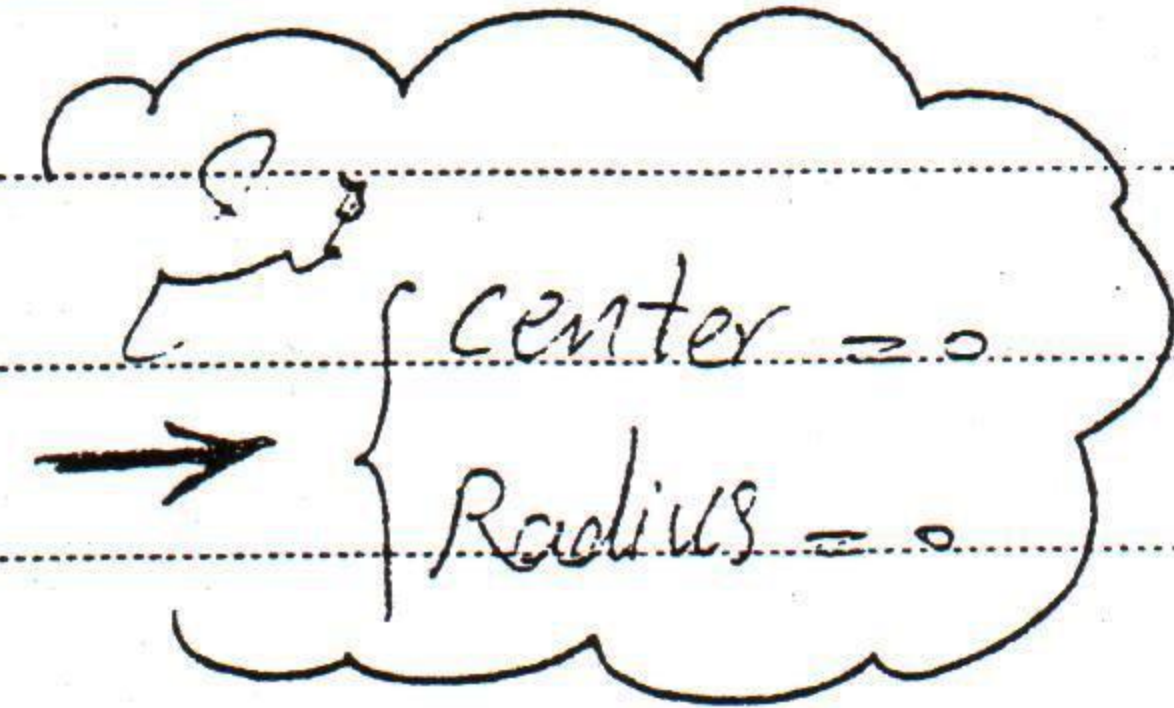 center = 0
Radius = 0